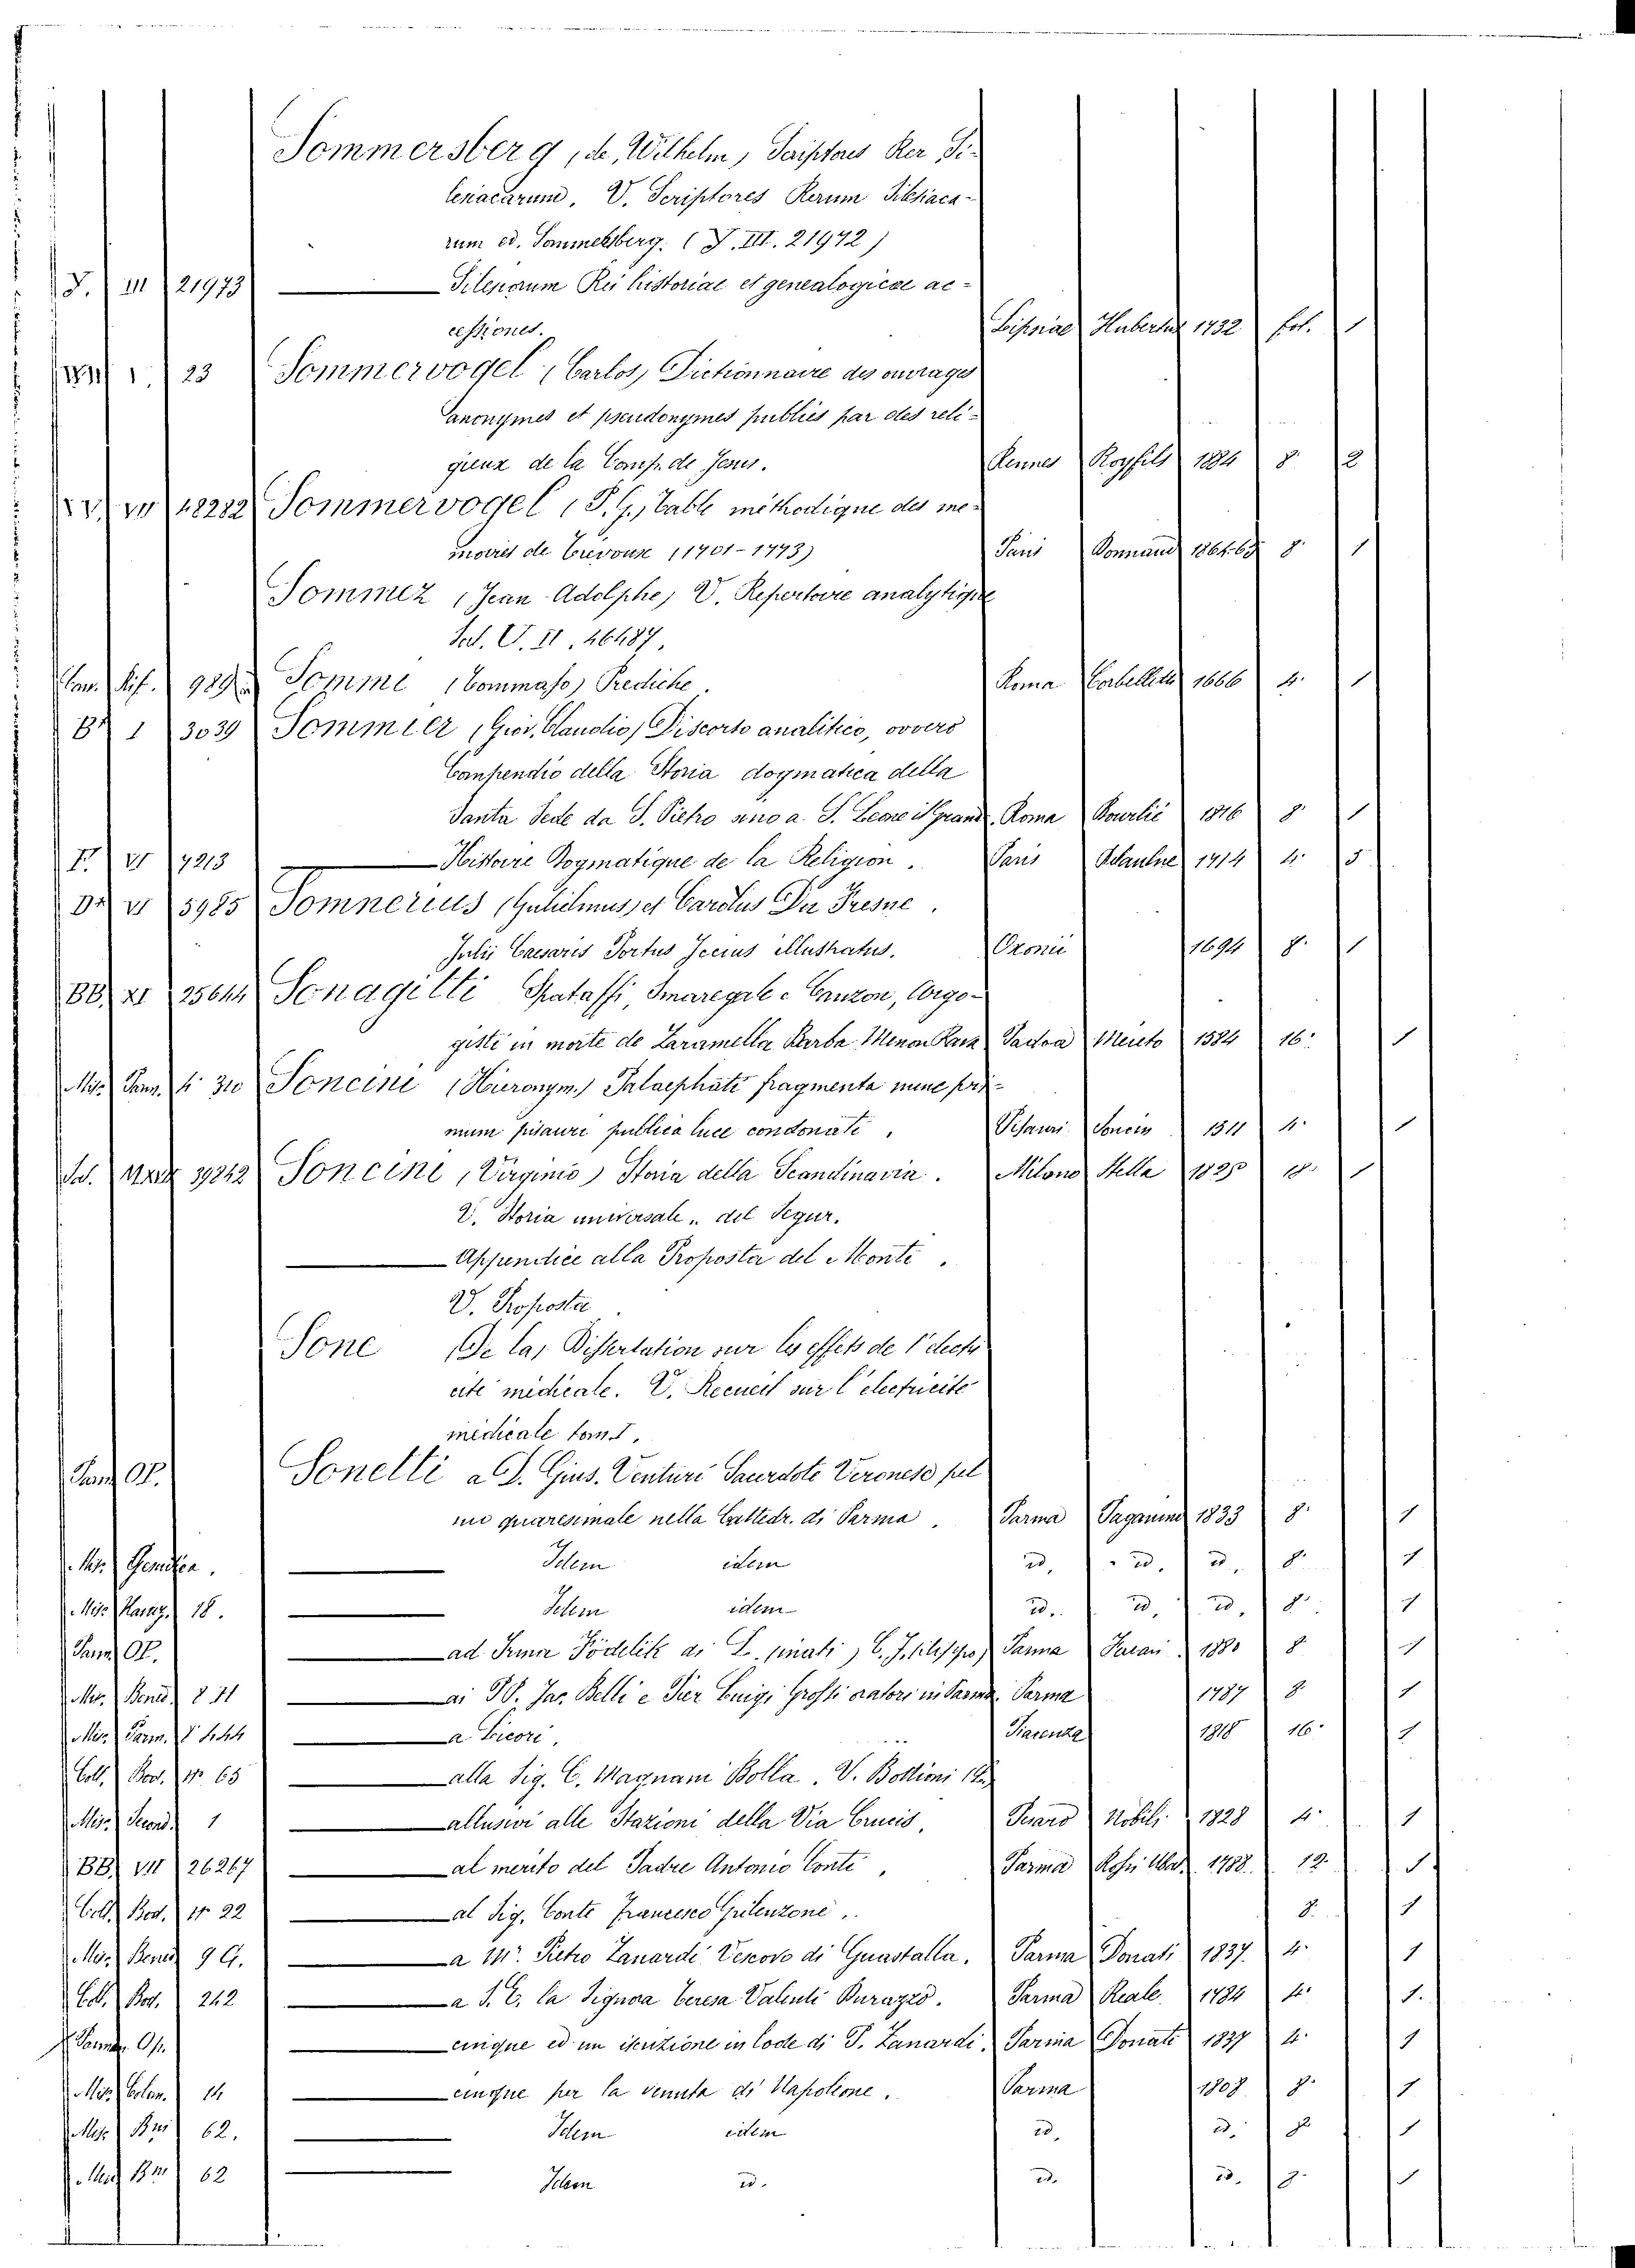 Sommersberg, de, Wilhelm, Scriptores Rer Si-
lesiacarum. V. Scriptores Rerum Silesiaca-
rum ed. Sommersberg. (J. III. 21972)
J. III 21973 Silesiorum Rei historiae et genealogicae ac-
cessiones. Lipsiae Hubertus 1732 fol. 1
1. 23 Sommervogel, Carlos, Dictionnaire des ouvrages
anonymes et pseudonymes publiés par des reli-
gieux de la Comp. de Jesus. Rennes Royfils 1884 8 2
48282 Sommervogel, P. G., Table méthodique des me-
moires de Trevoux (1701-1773) Paris Donnaud 1864.65 8 1
Sommez, Jean-Adolphe, V. Repertoire analytique
Sal. V. II. 46487.
Cam. Rif. 989 Sommi, Tommaso, Prediche. Roma Corbelletti 1666 4. 1
B* 1 3039 Sommier, Giov. Claudio, Discorso analitico, ovvero
Conpendio della Storia dogmatica della
Santa Sede da S. Pietro sino a S. Leone il Grande. Roma Bourlié 1816 8. 1
F. VI 7213 Histoire Dogmatique de la Religion. Paris 1714 4. 5
D* VI 5985 Somnerius, Gulielmus, et Carolus Du Fresne.
Julii Caesaris Portus Iccius illustratus. Oxonii 1694 8. 1
BB. XI 25644 Sonagitti Spataffi, Smaregale e Canzon, Corgo-
gisti in morte de Zaramella Barba Menon Rava Padova Meieto 1584 16. 1
Misc. Parm. 4 310 Soncini, Hieronym. Palaephati fragmenta nunc pri-
mum pisauri publica luce condonati. Pisauri Soncin 1511 4. 1
Sal. 39242 Soncini, Virginio, Storia della Scandinavia. Milano Stella 1825 18. 1
V. Storia universale .. del Segur.
Appendice alla Proposta del Monti.
V. Proposta
Sone, De la, Dissertation sur les effets de l'electri-
cité médicale. V. Recueil sur l'electricité
médicale tom. I.
Parm. Op. Sonetti a D. Gius. Venturi Sacerdote Veronese pel
suo quaresimale nella Cattedr. di Parma. Parma Paganino 1833 8. 1
Mis. Idem idem id. id. id. 8. 1
Mis. 18. Idem idem id. id. id. 8. 1
Parm. Op. ad Irma Födelik Parma Ferrari 1880 8 1
Mis. Bened. 8 31 ai DD. Jac. Belli e Pier Luigi Grossi oratori in Parma. Parma 1787 8 1
Mis. Parm. 8 a Licori. Piacenza 1818 16. 1
Coll. Bod. N° 65 alla Sig. C. Magnani Bolla. V. Bottioni
Mis. Second. 1 allusivi alle Stazioni della Via Crucis. Pesaro Nobili 1828 4. 1
BB. VII 26267 al merito del Padre Antonio Conti. Parma Rossi Ubal. 1788. 12. 1
Coll. Bod. N° 22 al Sig. Conte Francesco Gutenzoni. 8. 1
Mis. Bened. 9 G. a Mr. Pietro Zanardi Vescovo di Guastalla. Parma Donati 1837. 4. 1
Coll. Bod. 242 a S. E. la Signora Teresa Valenti Parma Reale 1784 4. 1.
Parm. Op. cinque ed un iscrizione in lode di P. Zanardi. Parma Donati 1837 4. 1
Mis. Colom. 14 cinque per la venuta di Napoleone. Parma 1808 8. 1
Misc. 62. Idem idem id. id. 8 1
Misc. 62 Idem id. id. id. 8. 1